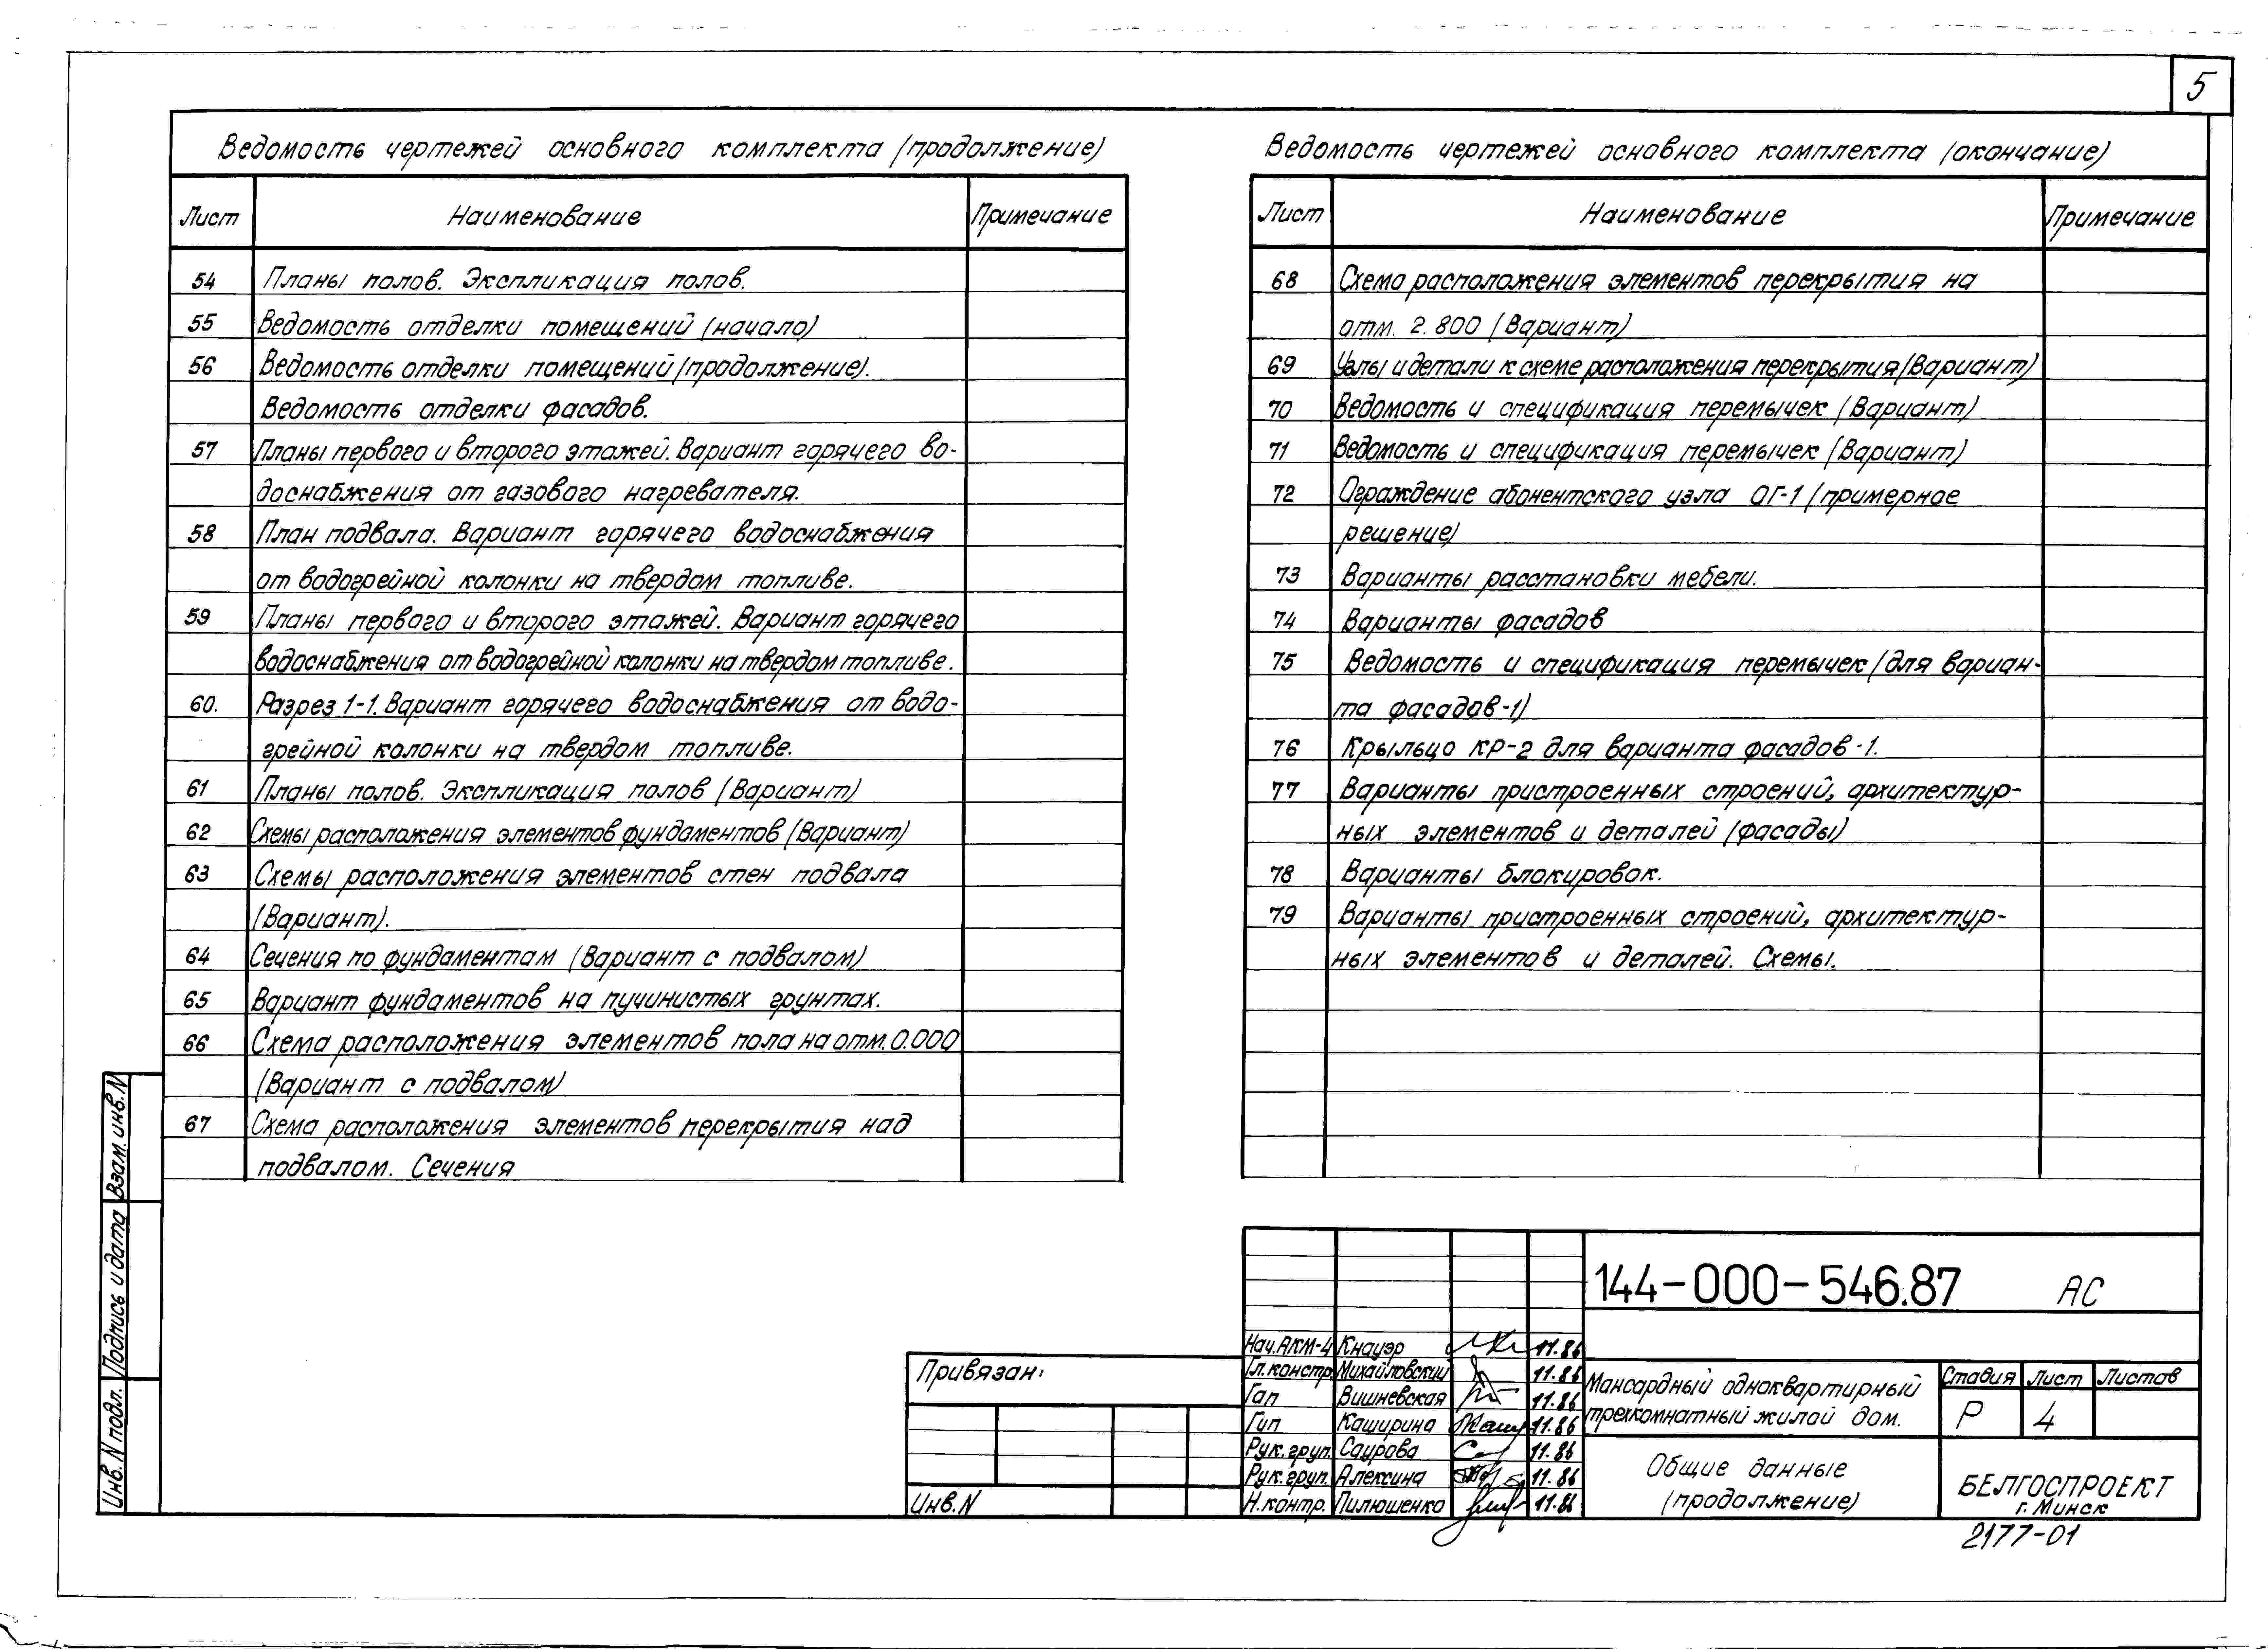 5
Ведомость чертежей основного комплекта (продолжение)
Лист Наименование Примечание
54 Планы полов. Экспликация полов.
55 Ведомость отделки помещений (начало)
56 Ведомость отделки помещений (продолжение).
Ведомость отделки фасадов.
57 Планы первого и второго этажей. Вариант горячего во-
доснабжения от газового нагревателя.
58 План подвала. Вариант горячего водоснабжения
от водогрейной колонки на твердом топливе.
59 Планы первого и второго этажей. Вариант горячего
водоснабжения от водогрейной колонки на твердом топливе.
60. Разрез 1-1. Вариант горячего водоснабжения от водо-
грейной колонки на твердом топливе.
61 Планы полов. Экспликация полов (Вариант)
62 Схемы расположения элементов фундаментов (Вариант)
63 Схемы расположения элементов стен подвала
(Вариант).
64 Сечения по фундаментам (Вариант с подвалом)
65 Вариант фундаментов на пучинистых грунтах.
66 Схема расположения элементов пола на отм. 0.000
(Вариант с подвалом)
67 Схема расположения элементов перекрытия над
подвалом. Сечения
Ведомость чертежей основного комплекта (окончание)
Лист Наименование Примечание
68 Схема расположения элементов перекрытия на
отм. 2.800 (Вариант)
69 Узлы и детали к схеме расположения перекрытия (Вариант)
70 Ведомость и спецификация перемычек (Вариант)
71 Ведомость и спецификация перемычек (Вариант)
72 Ограждение абонентского узла ОГ-1 (примерное
решение)
73 Варианты расстановки мебели.
74 Варианты фасадов
75 Ведомость и спецификация перемычек (для вариан-
та фасадов-1)
76 Крыльцо КР-2 для варианта фасадов-1.
77 Варианты пристроенных строений, архитектур-
ных элементов и деталей (фасады)
78 Варианты блокировок.
79 Варианты пристроенных строений, архитектур-
ных элементов и деталей. Схемы.
Взам. инв. N
Подпись и дата
Инв. N подл.
Привязан:
Инв. N
Нач. АКМ-4 Кнауэр 11.86
Гл. констр. Михайловский 11.86
Гап Вишневская 11.86
Гип Каширина 11.86
Рук. груп. Саурова 11.86
Рук. груп. Алексина 11.86
Н. контр. Пилюшенко 11.86
144-000-546.87 АС
Мансардный одноквартирный
трехкомнатный жилой дом.
Стадия Лист Листов
Р 4
Общие данные
(продолжение)
БЕЛГОСПРОЕКТ
г. Минск
2177-01